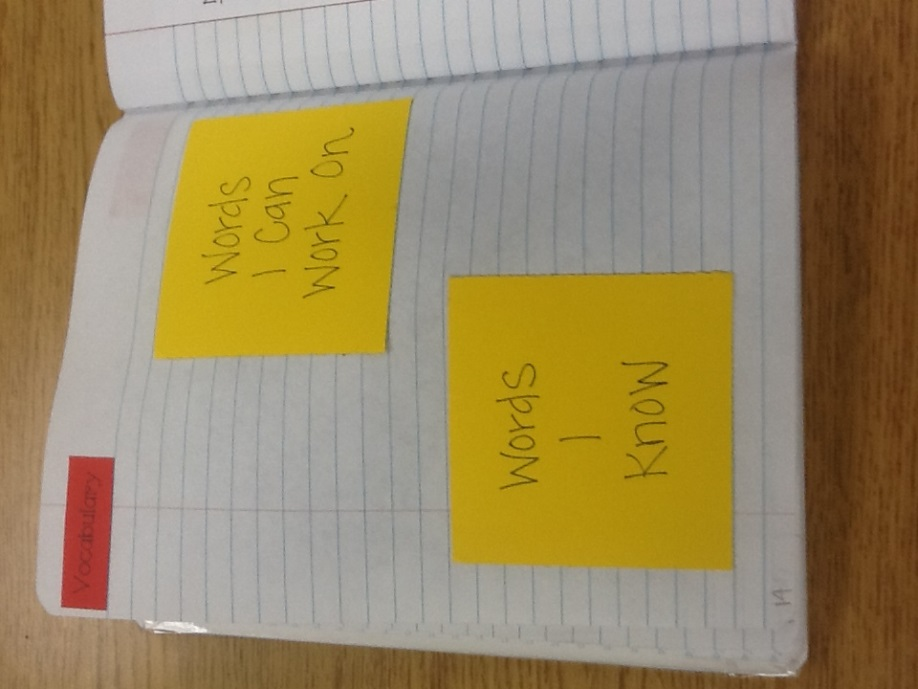 Vocabulary
Words
I Can
Work on
Words
I
Know
19